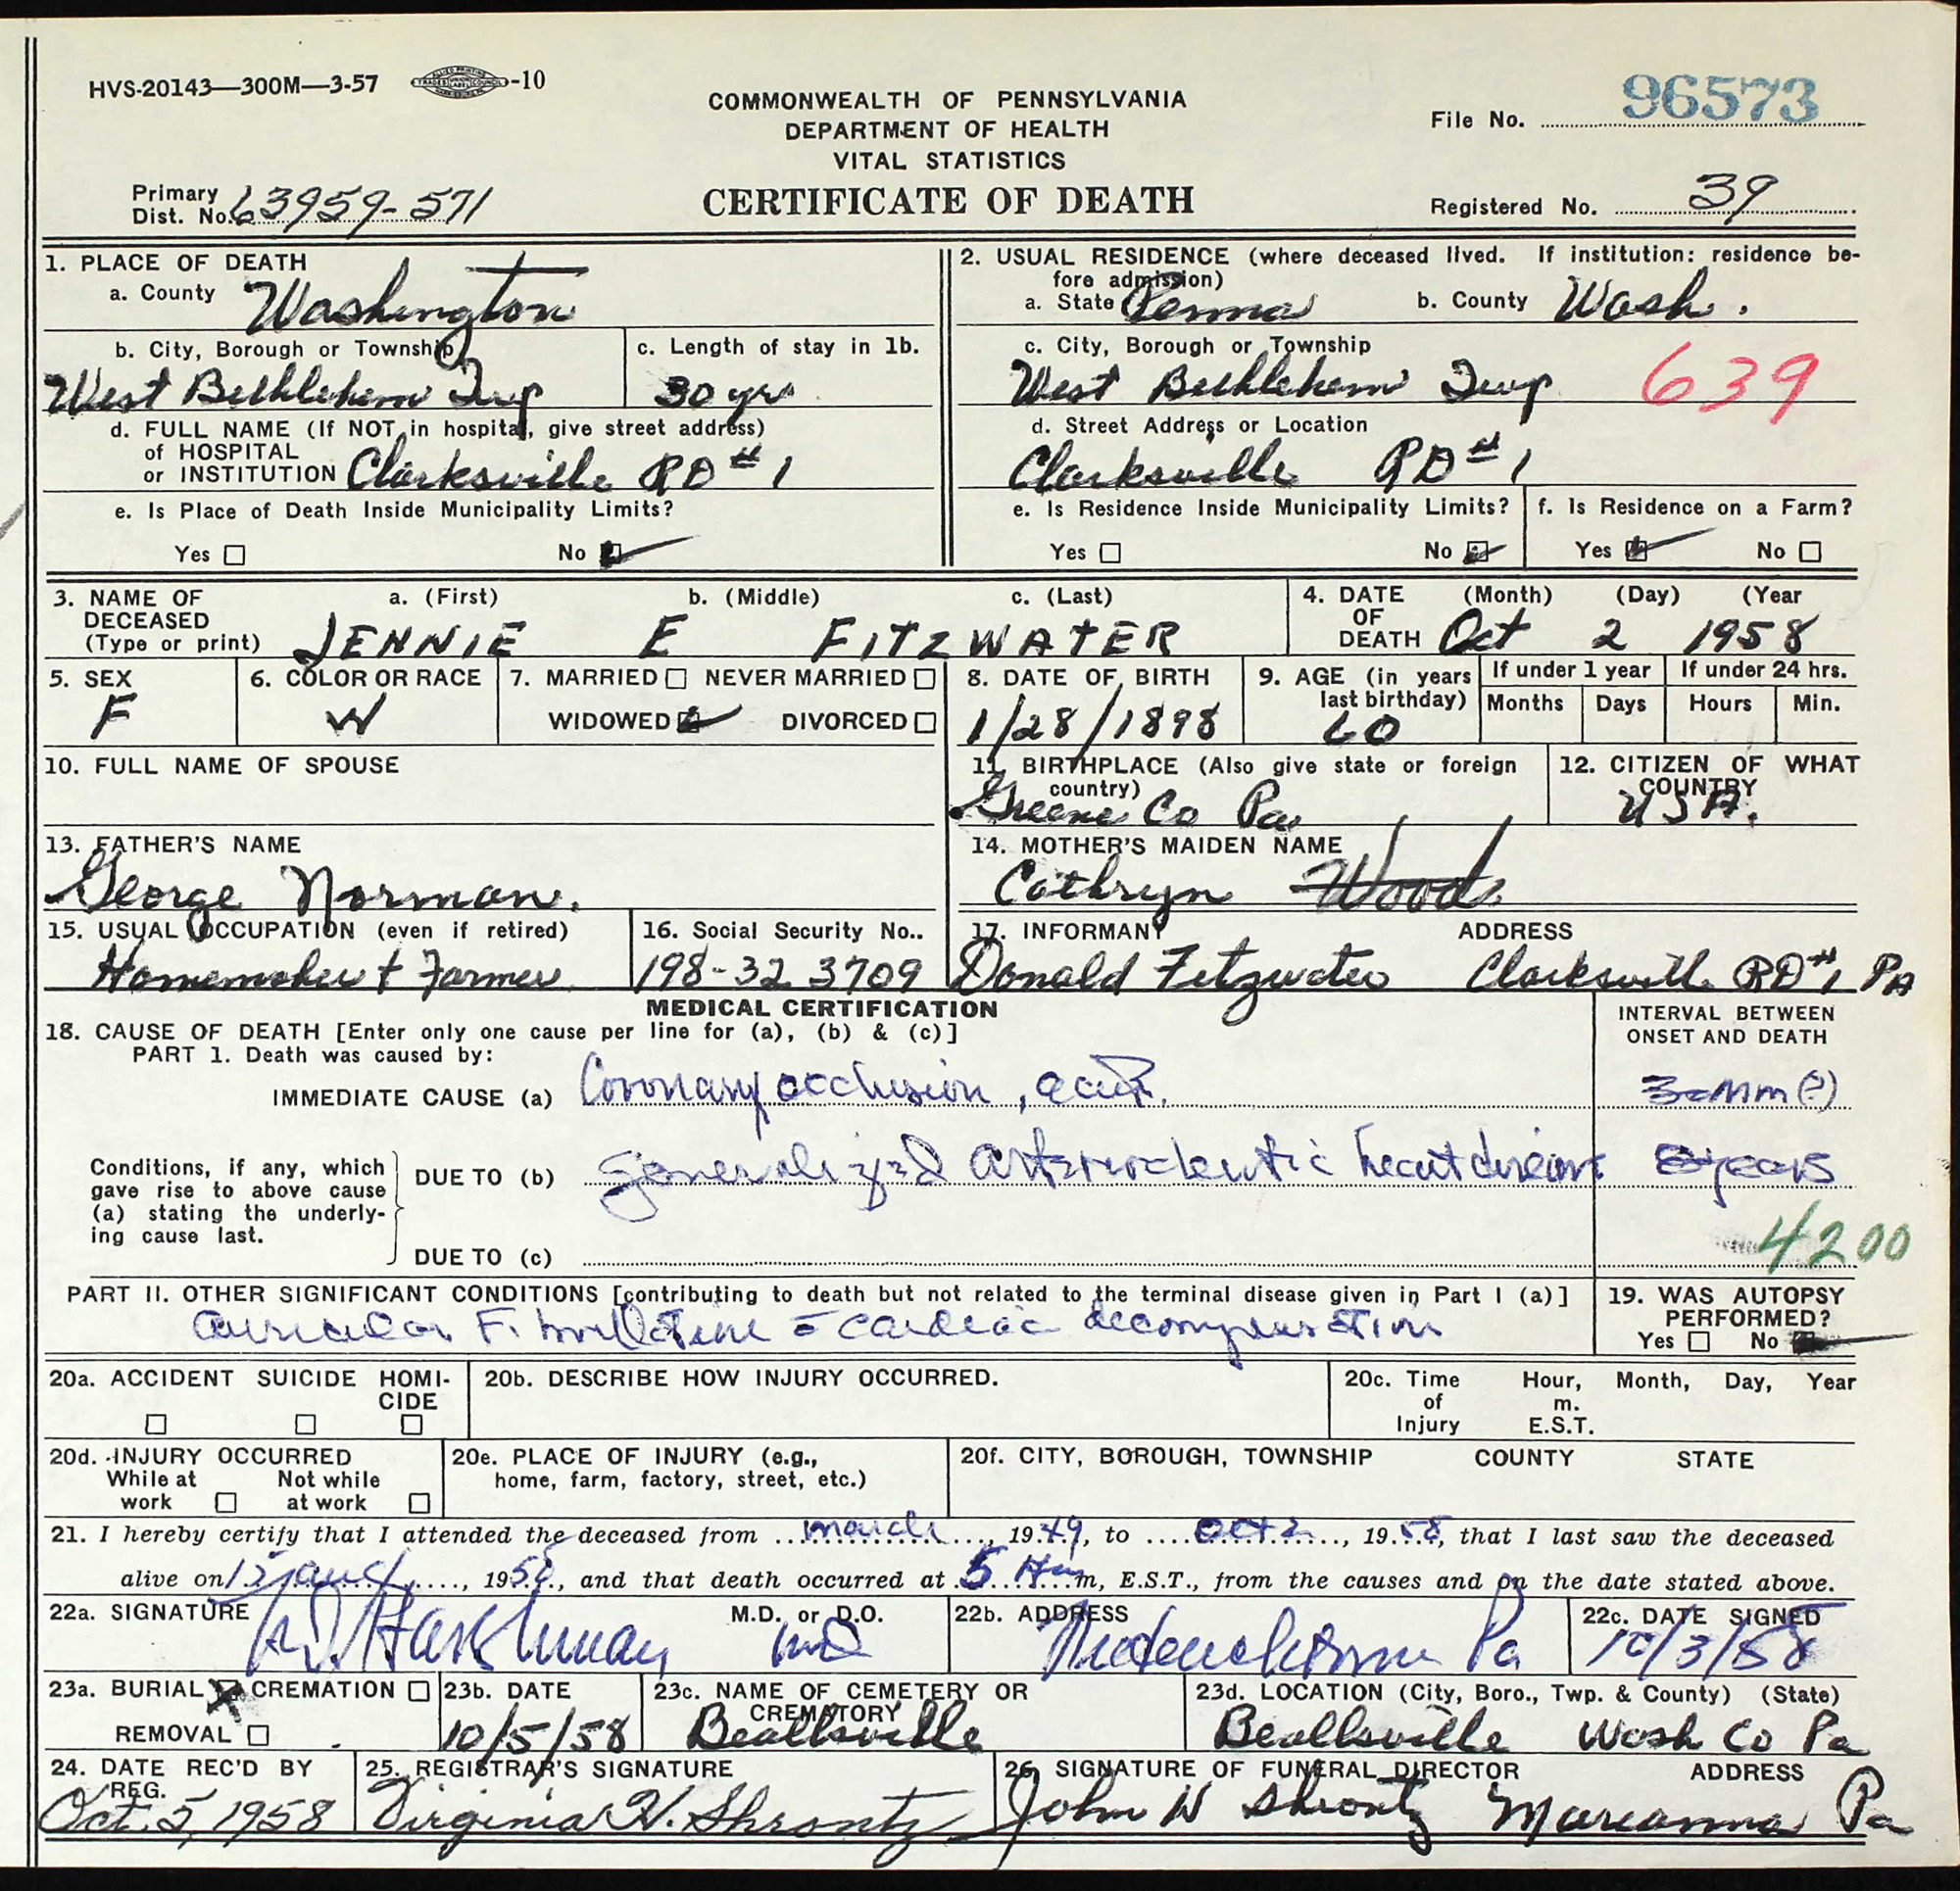 HVS-20143—300M—3-57 -10
COMMONWEALTH OF PENNSYLVANIA
DEPARTMENT OF HEALTH
VITAL STATISTICS
CERTIFICATE OF DEATH
File No. 96573
Primary
Dist. No. 63959-571
Registered No. 39
1. PLACE OF DEATH
a. County Washington
b. City, Borough or Township
West Bethlehem Twp
c. Length of stay in 1b.
30 yrs
d. FULL NAME (If NOT in hospital, give street address)
of HOSPITAL
or INSTITUTION Clarksville RD #1
e. Is Place of Death Inside Municipality Limits?
Yes No
2. USUAL RESIDENCE (where deceased lived. If institution: residence be-
fore admission)
a. State Penna b. County Wash.
c. City, Borough or Township
West Bethlehem Twp. 639
d. Street Address or Location
Clarksville RD #1
e. Is Residence Inside Municipality Limits?
Yes No
f. Is Residence on a Farm?
Yes No
3. NAME OF DECEASED
(Type or print)
a. (First) b. (Middle) c. (Last)
JENNIE E FITZWATER
4. DATE OF DEATH
(Month) (Day) (Year
Oct 2 1958
5. SEX
F
6. COLOR OR RACE
W
7. MARRIED NEVER MARRIED
WIDOWED DIVORCED
8. DATE OF BIRTH
1/28/1898
9. AGE (in years
last birthday)
60
If under 1 year
Months Days
If under 24 hrs.
Hours Min.
10. FULL NAME OF SPOUSE
11. BIRTHPLACE (Also give state or foreign
country)
Greene Co Pa
12. CITIZEN OF WHAT
COUNTRY
USA.
13. FATHER'S NAME
George Norman.
14. MOTHER'S MAIDEN NAME
Cathryn Woods
15. USUAL OCCUPATION (even if retired)
Homemaker + Farmer
16. Social Security No..
198-32 3709
17. INFORMANT ADDRESS
Donald Fitzwater Clarksville RD #1 PA
MEDICAL CERTIFICATION
18. CAUSE OF DEATH [Enter only one cause per line for (a), (b) & (c)]
PART 1. Death was caused by:
INTERVAL BETWEEN
ONSET AND DEATH
IMMEDIATE CAUSE (a) Coronary occlusion, acute. 30 Min (?)
Conditions, if any, which
gave rise to above cause
(a) stating the underly-
ing cause last.
DUE TO (b) Generalized arteriosclerotic heart disease years
DUE TO (c)
4200
PART II. OTHER SIGNIFICANT CONDITIONS [contributing to death but not related to the terminal disease given in Part I (a)]
auricular Fibrillation c cardiac decompensation
19. WAS AUTOPSY
PERFORMED?
Yes No
20a. ACCIDENT SUICIDE HOMI-
CIDE
20b. DESCRIBE HOW INJURY OCCURRED.
20c. Time of Injury
Hour, Month, Day, Year
m.
E.S.T.
20d. INJURY OCCURRED
While at work Not while at work
20e. PLACE OF INJURY (e.g.,
home, farm, factory, street, etc.)
20f. CITY, BOROUGH, TOWNSHIP COUNTY STATE
21. I hereby certify that I attended the deceased from march, 1949, to Oct 2, 1958, that I last saw the deceased
alive on, 1958, and that death occurred at 5 Am m, E.S.T., from the causes and on the date stated above.
22a. SIGNATURE M.D. or D.O.
Harshman MD
22b. ADDRESS
Fredericktown Pa
22c. DATE SIGNED
10/3/58
23a. BURIAL CREMATION
REMOVAL
23b. DATE
10/5/58
23c. NAME OF CEMETERY OR
CREMATORY
Beallsville
23d. LOCATION (City, Boro., Twp. & County) (State)
Beallsville Wash Co Pa
24. DATE REC'D BY
REG.
Oct. 5, 1958
25. REGISTRAR'S SIGNATURE
Virginia H. Shrontz
26. SIGNATURE OF FUNERAL DIRECTOR ADDRESS
John W Shrontz Marianna Pa